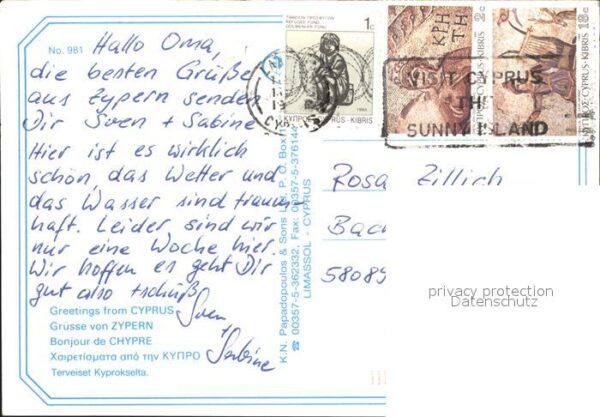 No. 981
Hallo Oma,
die besten Grüße
aus Zypern senden
Dir Sven + Sabine
Hier ist es wirklich
schön, das Wetter und
das Wasser sind traum
haft. Leider sind wir
nur eine Woche hier.
Wir hoffen es geht Dir
gut also tschüß
Sven
+ Sabine
Greetings from CYPRUS
Grüsse von ZYPERN
Bonjour de CHYPRE
Χαιρετίσματα από την ΚΥΠΡΟ
Terveiset Kyprokselta.
K.N. Papadopoulos & Sons Ltd. P. O. Box
☎ 00357-5-362332, Fax: 00357-5-376144
LIMASSOL - CYPRUS
1c
ΚΥΠΡΟΣ KIBRIS
2c
ΚΡΗ
ΤΗ
CYPRUS·KIBRIS
18c
ΚΥΠΡΟΣ·CYPRUS·KIBRIS
VISIT CYPRUS
THE
SUNNY ISLAND
Rosa Zillich
58089
privacy protection
Datenschutz